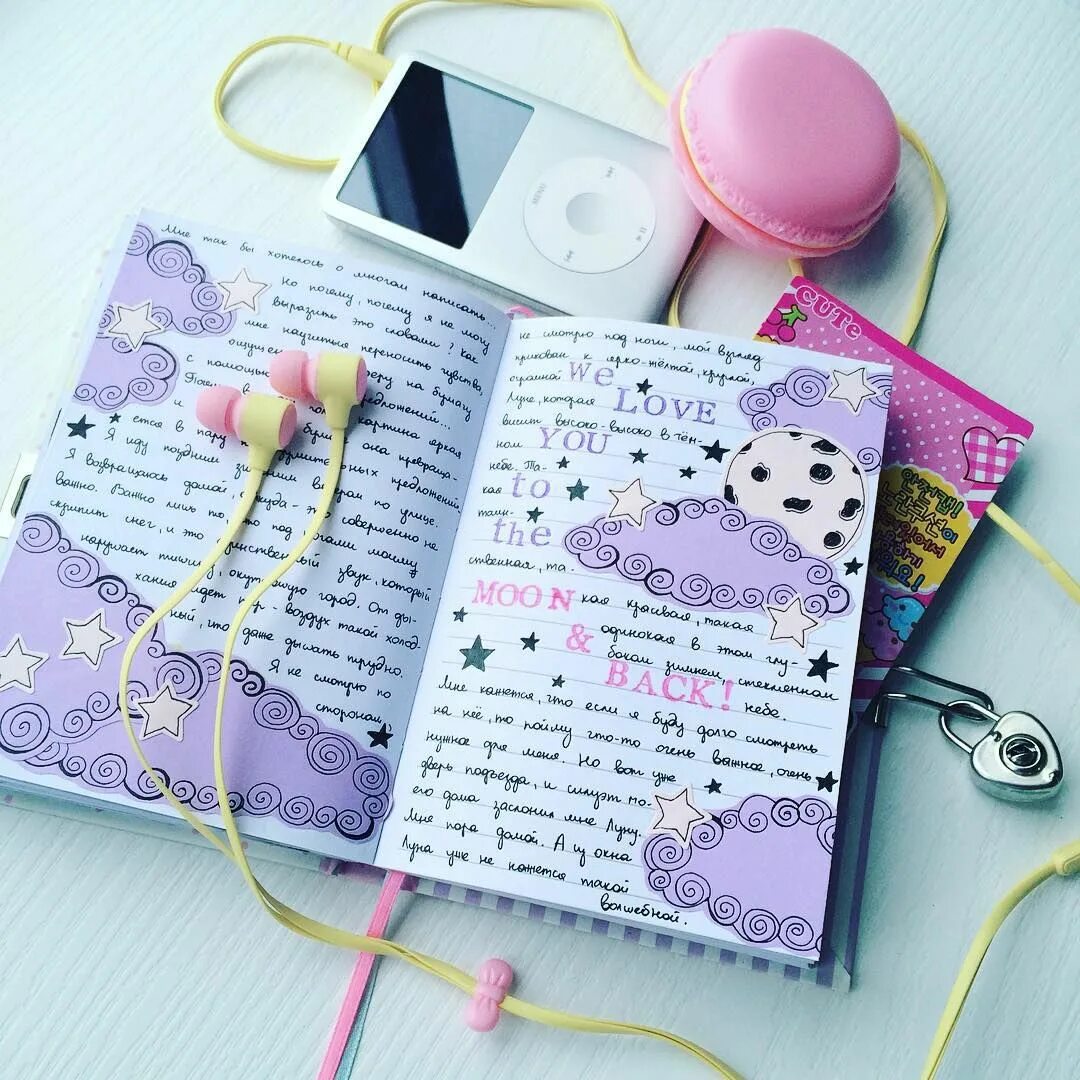 Мне так бы хотелось о многом написать...
Но почему, почему я не могу
выразить это словами? Как
мне научиться переносить чувства,
ощуще на бумагу
с помощью предложений...
картина яркая
и она превраща-
ется в пару предложений.
Я иду поздним зимним по улице.
Я возвращаюсь домой, это совершенно не
важно. Важно лишь то, что под ногами моими
скрипит снег, и это единственный звук, который
нарушает тишину, окутавшую город. От ды-
хания идет пар - воздух такой холод-
ный, что даже дышать трудно.
Я не смотрю по
сторонам,
не смотрю под ноги, мой взгляд
прикован к ярко-жёлтой, круглой,
огромной
Луне, которая
висит высоко-высоко в тём-
ном
небе. Та-
кая
таин-
ственная, та-
кая красивая, такая
одинокая в этом глу-
боком зимнем, стеклянном
небе.
We
LOVE
YOU
to
the
MOON
&
BACK!
Мне кажется, что если я буду долго смотреть
на неё, то пойму что-то очень важное, очень
нужное для меня. Но вот уже
дверь подъезда, и силуэт мо-
его дома заслонил мне Луну.
Мне пора домой. А из окна
Луна уже не кажется такой
волшебной.
MENU
CUTe